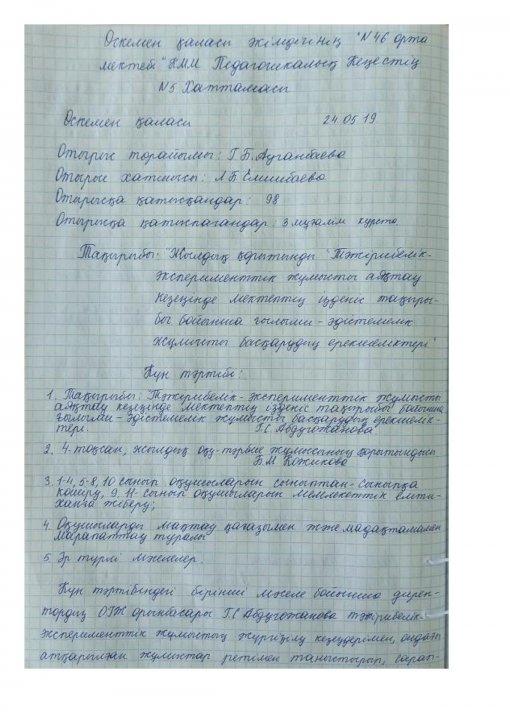 Өскемен қаласы әкімдігінің "№46 орта
мектебі" КММ Педагогикалық Кеңестің
№5 Хаттамасы
Өскемен қаласы 24.05.19
Отырыс төрайымы: Г.Б.Ауганбаева
Отырыс хатшысы: Л.Б
Отырысқа қатысқандар: 98
Отырысқа қатыспағандар: 3 мұғалім курста.
Тақырыбы: "Жылдық қорытынды "Тәжірибелік-
эксперименттік жұмысты аяқтау
кезеңінде мектептің ізденіс тақыры-
бы бойынша ғылыми-әдістемелік
жұмысты басқарудың ерекшеліктері"
Күн тәртібі:
1. Тақырыбы: Тәжірибелік-эксперименттік жұмысты
аяқтау кезеңінде мектептің ізденіс тақырыбы бойынша
ғылыми-әдістемелік жұмысты басқарудың ерекшелік-
тері Г.С Абдугожанова
2. 4-тоқсан, жылдық оқу-тәрбие жұмысының қорытындысы
Б.М Кожикова
3. 1-4, 5-8, 10 сынып оқушыларын сыныптан-сыныпқа
көшіру, 9, 11-сынып оқушыларын мемлекеттік емти-
ханға жіберу;
4. Оқушыларды мақтау қағазымен және мадақтамамен
марапаттау туралы
5. Әр түрлі мәселелер.
Күн тәртібіндегі бірінші мәселе бойынша дирек-
тордың ОІЖ орынбасары Г.С Абдугожанова тәжірибелік-
эксперименттік жұмыстың жүргізілу кезеңдерімен, ондағы
атқарылған жұмыстар ретімен таныстырып, сарап-